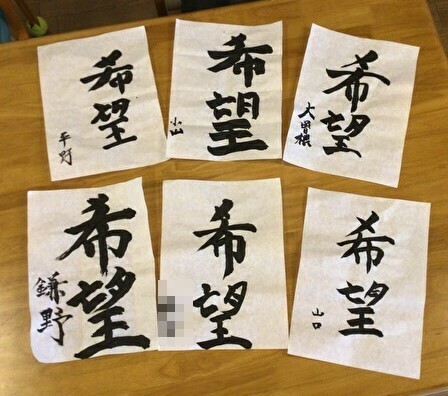 希望
平野
希望
小山
希望
大曽根
希望
鎌野
希望
希望
山口